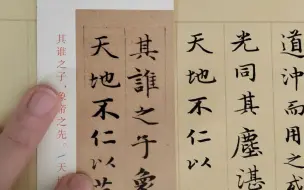 道沖而用之或
光同其塵湛
天地不仁以
其誰之子象
天地不仁以
其誰之子，象帝之先。（天地